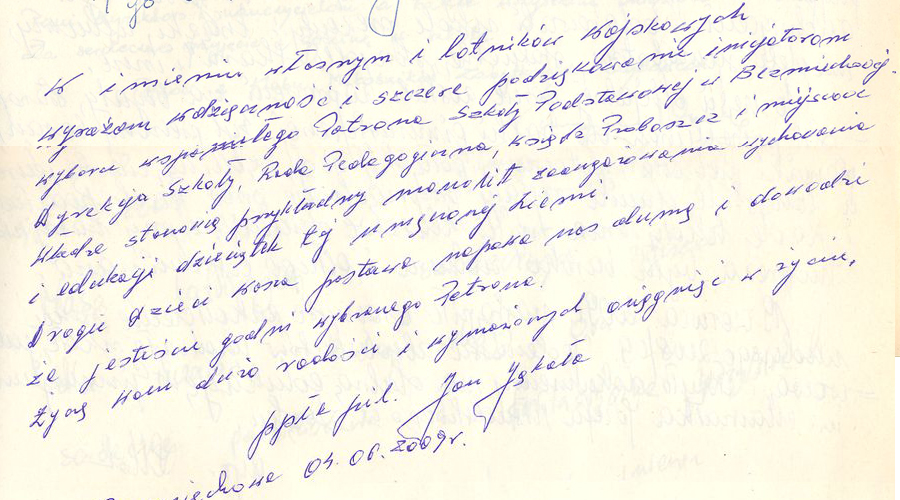 W imieniu własnym i lotników wojskowych
wyrażam wdzięczność i szczere podziękowanie inicjatorom
wyboru wspaniałego Patrona Szkoły Podstawowej w Bezmiechowej.
Dyrekcja Szkoły, Rada Pedagogiczna, Ksiądz Proboszcz i miejscowe
władze stanowią przykładny monolit zaangażowania wychowania
i edukacji dzieciątek tej umęczonej ziemi.
Drogie dzieci wasza postawa napawa nas dumą i dowodzi
że jesteście godni wybranego Patrona.
Życzę Wam dużo radości i wymarzonych osiągnięć w życiu.
ppłk pil. Jan
04.06.2009r.